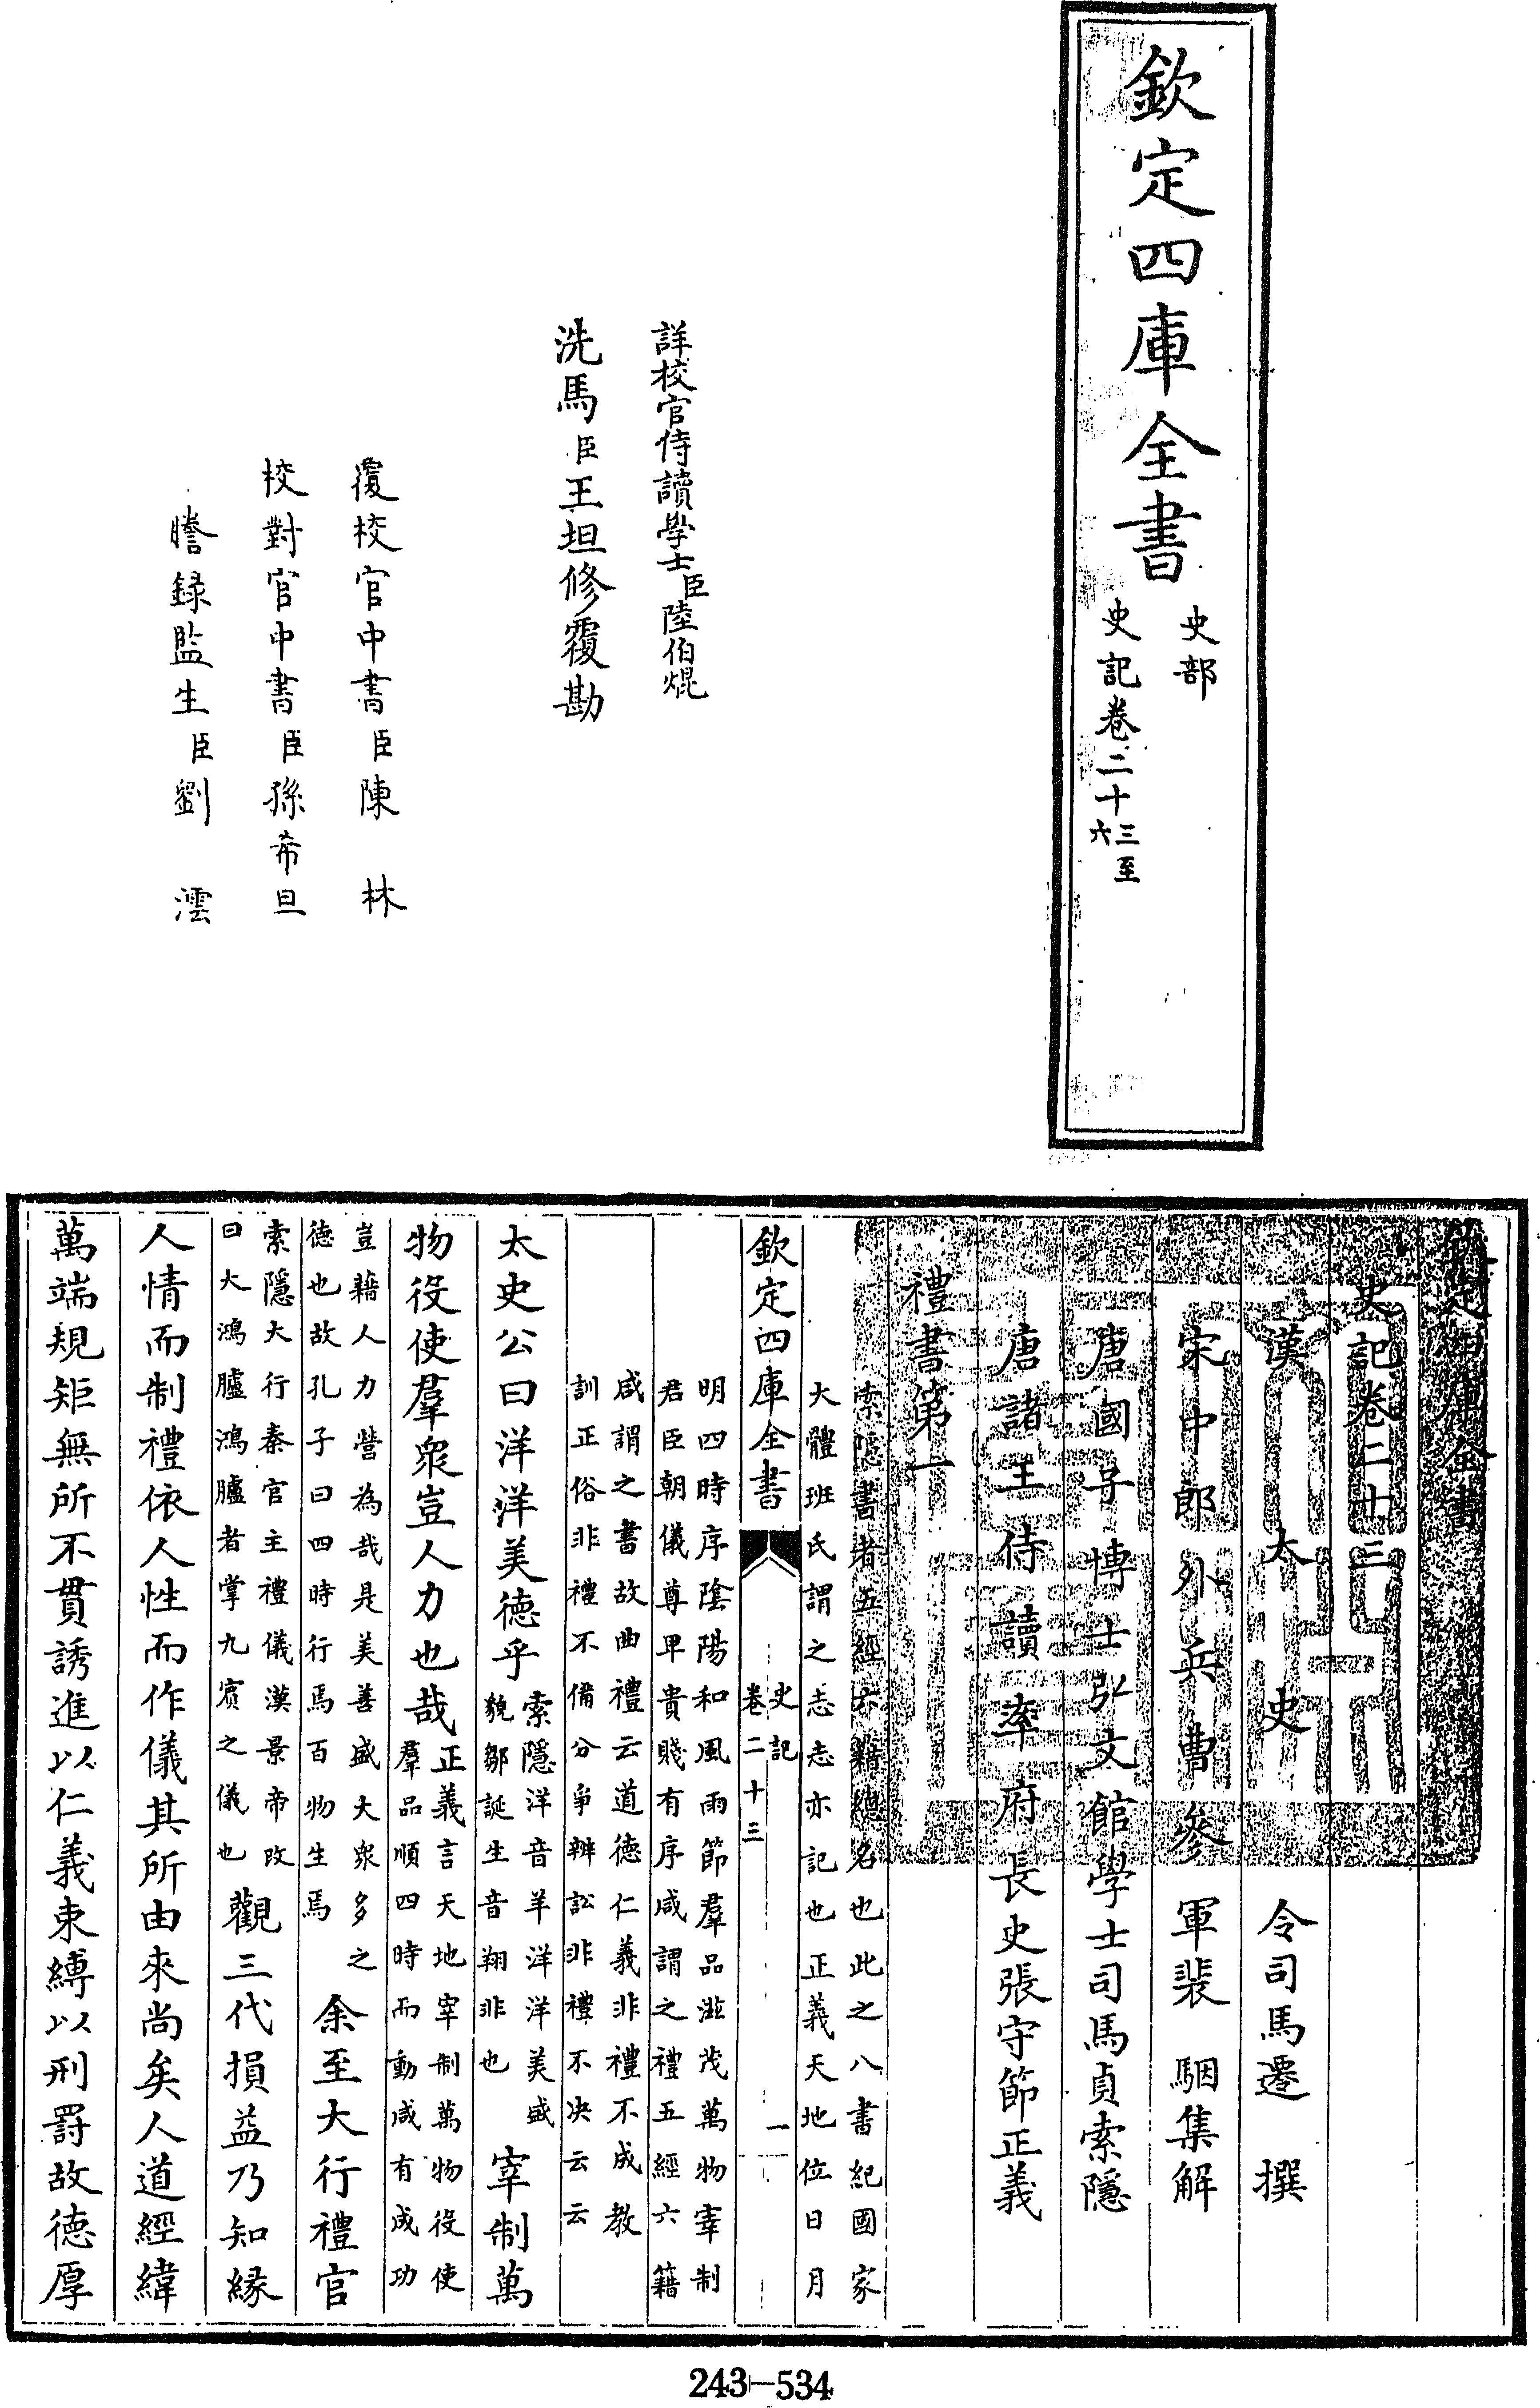 欽定四庫全書
史部
史記卷二十三至
六
詳校官侍讀學士臣陸伯焜
洗馬臣王坦修覆勘
覆校官中書臣陳林
校對官中書臣孫希旦
謄録監生臣劉澐
欽定四庫全書
史記卷二十三
漢太史令司馬遷撰
宋中郎外兵曹參軍裴駰集解
唐國子博士弘文館學士司馬貞索隱
唐諸王侍讀率府長史張守節正義
禮書第一
索隱書者五經六籍總名也此之八書紀國家
大體班氏謂之志志亦記也正義天地位日月
欽定四庫全書
史記
卷二十三
一
明四時序陰陽和風雨節羣品滋茂萬物宰制
君臣朝儀尊卑貴賤有序咸謂之禮五經六籍
咸謂之書故曲禮云道德仁義非禮不成教
訓正俗非禮不備分爭辨訟非禮不决云云
太史公曰洋洋美德乎
索隱洋音羊洋洋美盛
貌鄒誕生音翔非也
宰制萬
物役使羣衆豈人力也哉
正義言天地宰制萬物役使
羣品順四時而動咸有成功
豈藉人力營為哉是美善盛大衆多之
徳也故孔子曰四時行焉百物生焉
余至大行禮官
索隱大行秦官主禮儀漢景帝改
曰大鴻臚鴻臚者掌九賓之儀也
觀三代損益乃知緣
人情而制禮依人性而作儀其所由來尚矣人道經緯
萬端規矩無所不貫誘進以仁義束縛以刑罰故德厚
243-534